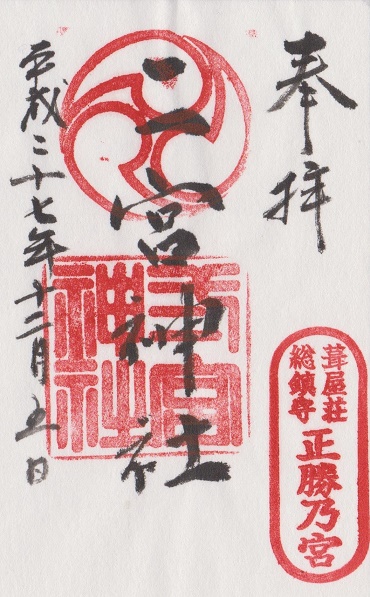 奉拝
葺屋荘
総鎮守
正勝乃宮
二宮神社
宮
神社
平成二十七年十二月五日